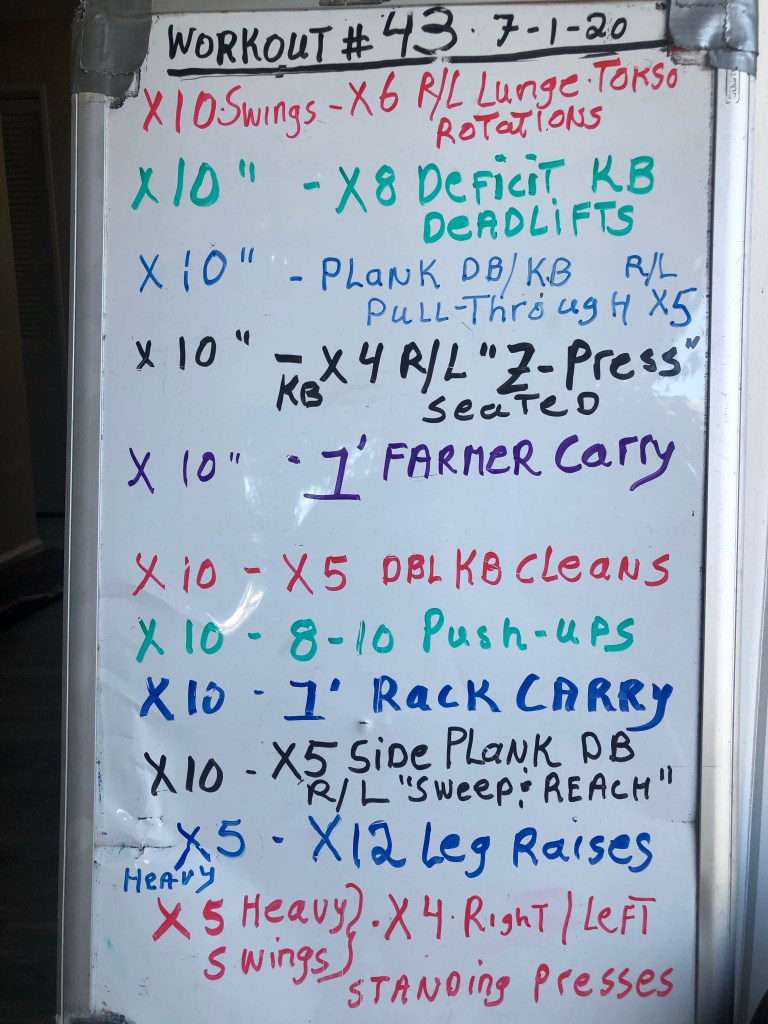 WORKOUT # 43 . 7-1-20
X10 Swings - X6 R/L Lunge. Torso
ROTATIONS
X 10 " - X8 Deficit KB
DEADLIFTS
X 10 " - PLANK DB/KB R/L
Pull-Through X5
X 10 " - X4 R/L "Z-Press"
KB SEATED
X 10 " - 1' FARMER Carry
X 10 - X5 DBL KB CLEANS
X 10 - 8-10 Push-ups
X10 - 1' RACK CARRY
X10 - X5 SIDE PLANK DB
R/L "Sweep & REACH"
X5 - X12 Leg Raises
HEAVY
X 5 Heavy} . X 4 . Right / Left
Swings} STANDing Presses